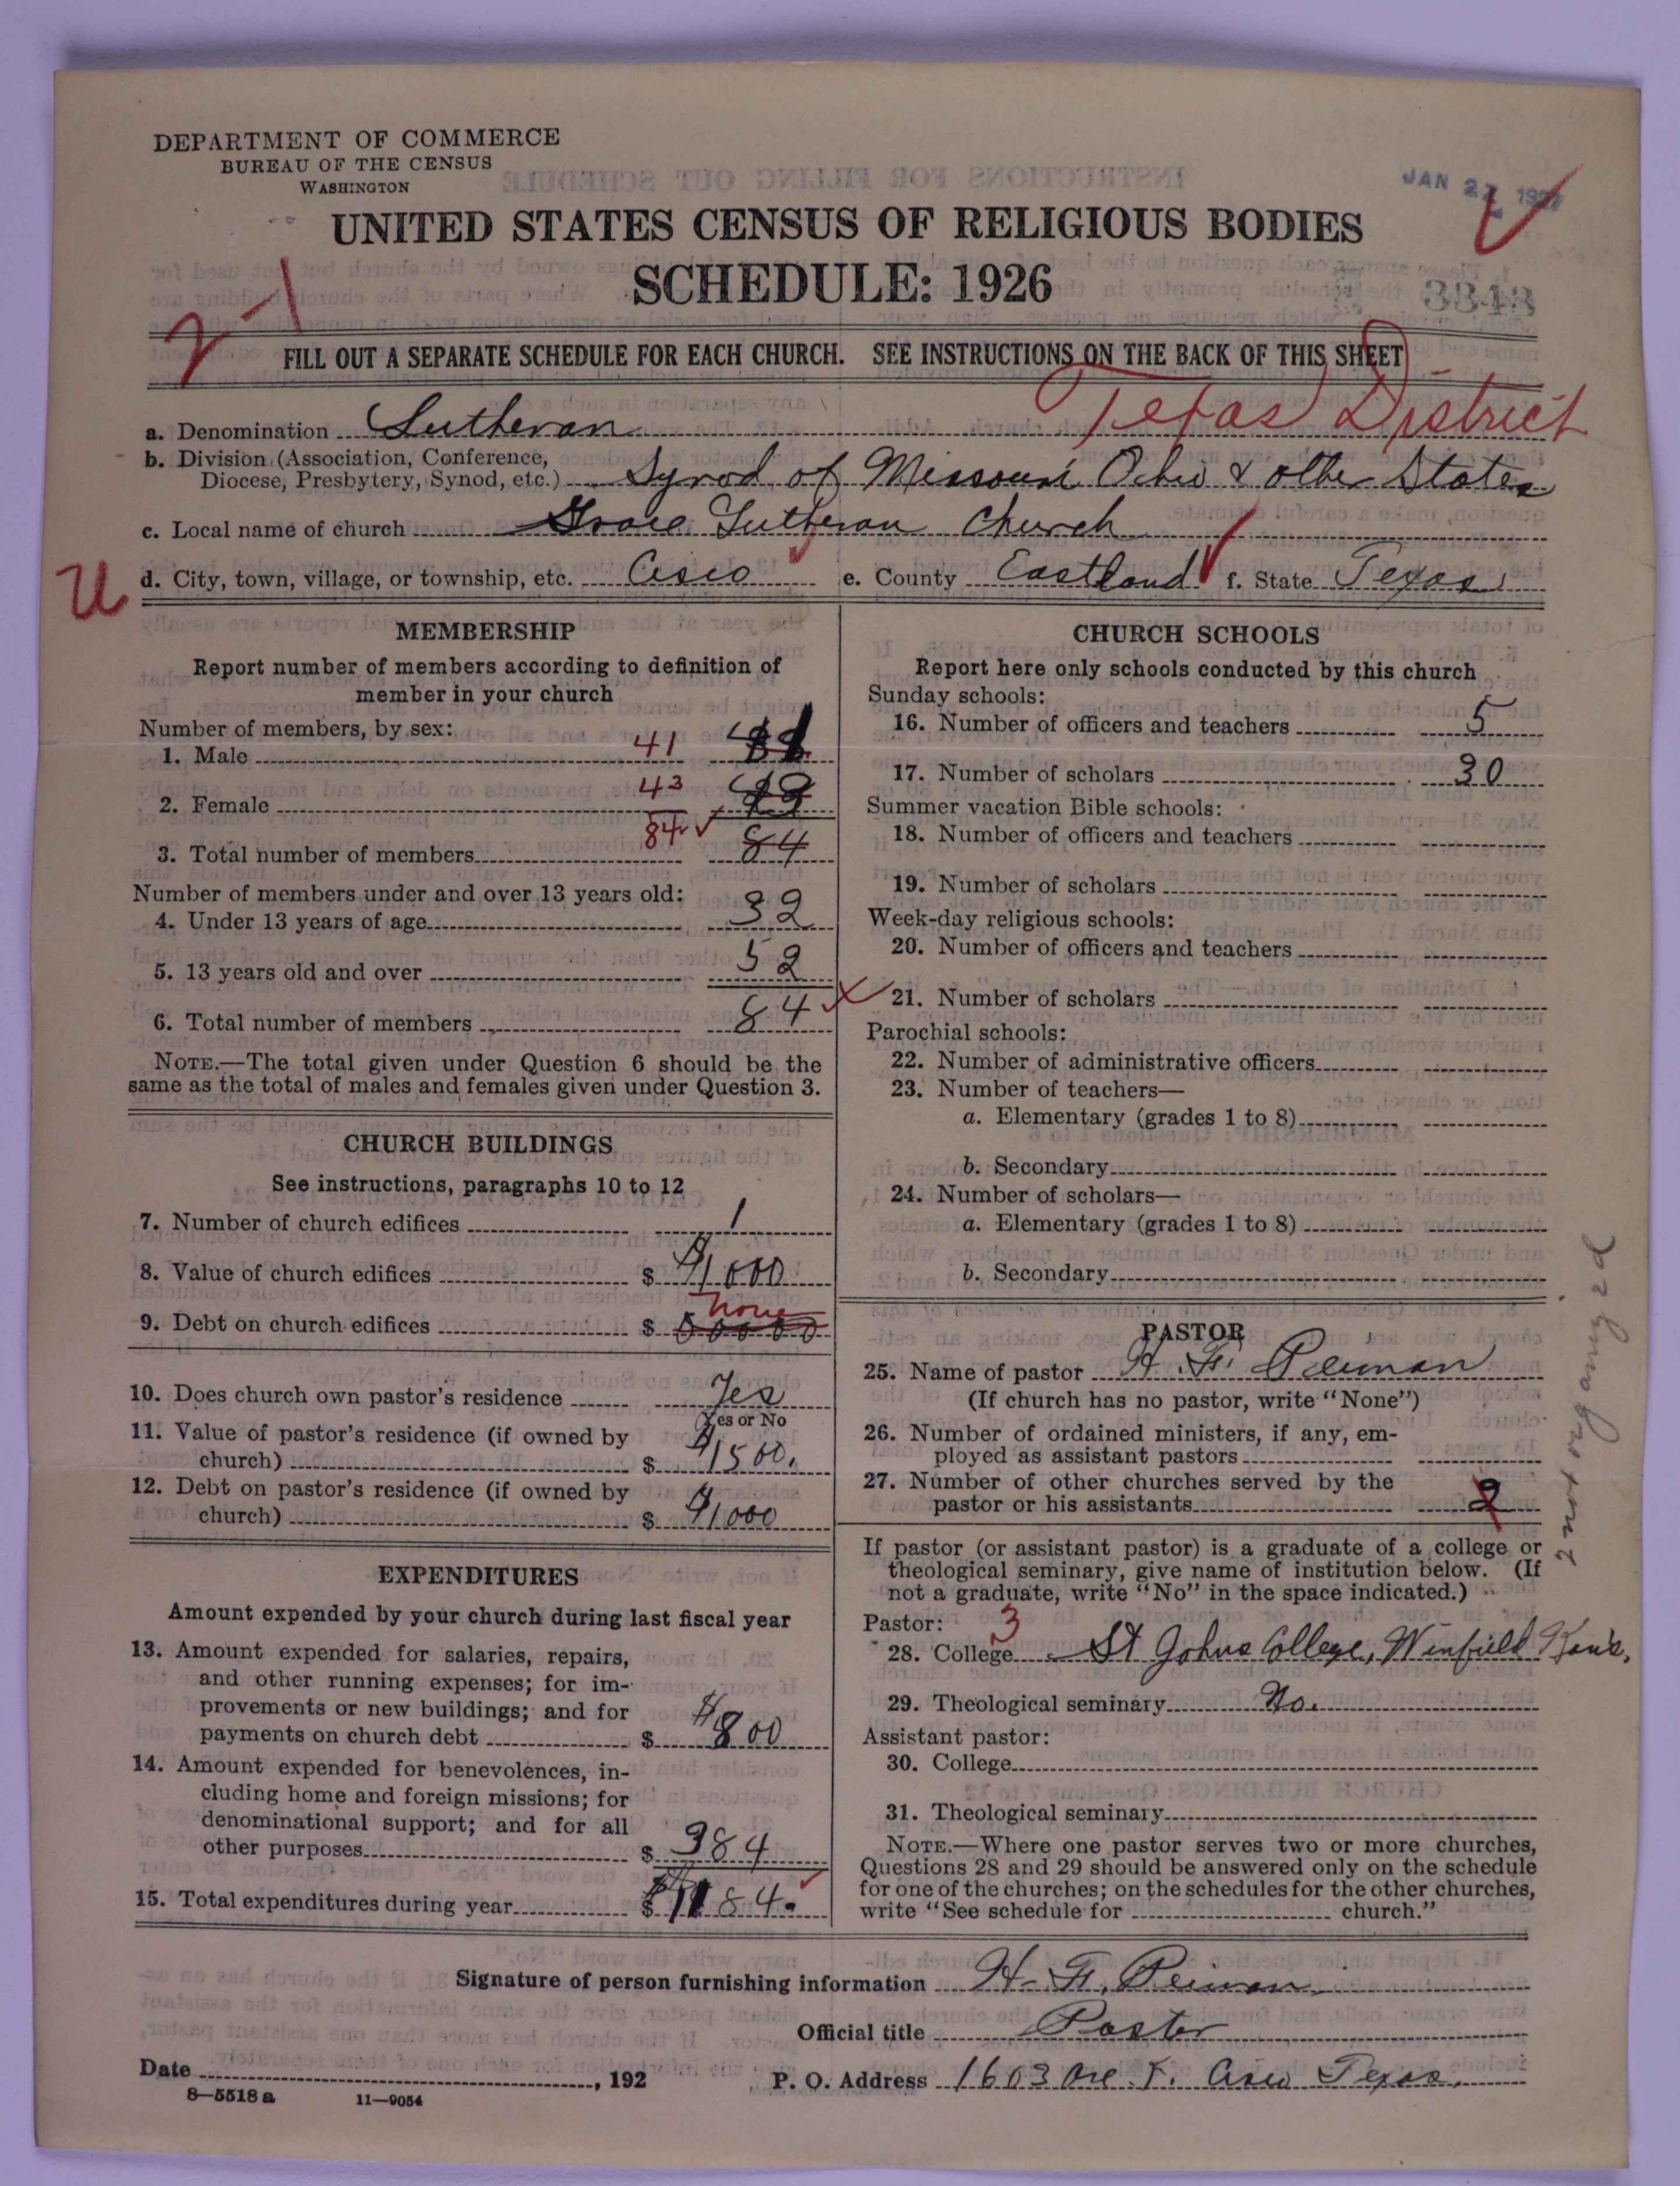 DEPARTMENT OF COMMERCE
BUREAU OF THE CENSUS
WASHINGTON
JAN 27 1927
UNITED STATES CENSUS OF RELIGIOUS BODIES
SCHEDULE: 1926
2-1
FILL OUT A SEPARATE SCHEDULE FOR EACH CHURCH. SEE INSTRUCTIONS ON THE BACK OF THIS SHEET
Texas District
a. Denomination Lutheran
b. Division (Association, Conference,
Diocese, Presbytery, Synod, etc.) Synod of Missouri Ohio & other States
c. Local name of church Grace Lutheran Church
U d. City, town, village, or township, etc. Cisco e. County Eastland f. State Texas
MEMBERSHIP
Report number of members according to definition of
member in your church
Number of members, by sex:
1. Male 41
2. Female 43
84
3. Total number of members 84
Number of members under and over 13 years old:
4. Under 13 years of age 32
5. 13 years old and over 52
6. Total number of members 84
NOTE.—The total given under Question 6 should be the
same as the total of males and females given under Question 3.
CHURCH BUILDINGS
See instructions, paragraphs 10 to 12
7. Number of church edifices 1
8. Value of church edifices $ $1000
9. Debt on church edifices $ none
10. Does church own pastor's residence Yes
Yes or No
11. Value of pastor's residence (if owned by
church) $ $1500.
12. Debt on pastor's residence (if owned by
church) $ $1000
EXPENDITURES
Amount expended by your church during last fiscal year
13. Amount expended for salaries, repairs,
and other running expenses; for im-
provements or new buildings; and for
payments on church debt $ $800
14. Amount expended for benevolences, in-
cluding home and foreign missions; for
denominational support; and for all
other purposes $ 384
15. Total expenditures during year $ $1184.
CHURCH SCHOOLS
Report here only schools conducted by this church
Sunday schools:
16. Number of officers and teachers 5
17. Number of scholars 30
Summer vacation Bible schools:
18. Number of officers and teachers
19. Number of scholars
Week-day religious schools:
20. Number of officers and teachers
21. Number of scholars
Parochial schools:
22. Number of administrative officers
23. Number of teachers—
a. Elementary (grades 1 to 8)
b. Secondary
24. Number of scholars—
a. Elementary (grades 1 to 8)
b. Secondary
PASTOR
25. Name of pastor H. F. Peiman
(If church has no pastor, write "None")
26. Number of ordained ministers, if any, em-
ployed as assistant pastors
27. Number of other churches served by the
pastor or his assistants 2
2 not organized
If pastor (or assistant pastor) is a graduate of a college or
theological seminary, give name of institution below. (If
not a graduate, write "No" in the space indicated.)
Pastor: 3
28. College St Johns College, Winfield Kans.
29. Theological seminary No.
Assistant pastor:
30. College
31. Theological seminary
NOTE.—Where one pastor serves two or more churches,
Questions 28 and 29 should be answered only on the schedule
for one of the churches; on the schedules for the other churches,
write "See schedule for church."
Signature of person furnishing information H. F. Peiman
Official title Pastor
Date , 192
P. O. Address 1603 Ave. F. Cisco Texas.
8—5518 a 11—9054